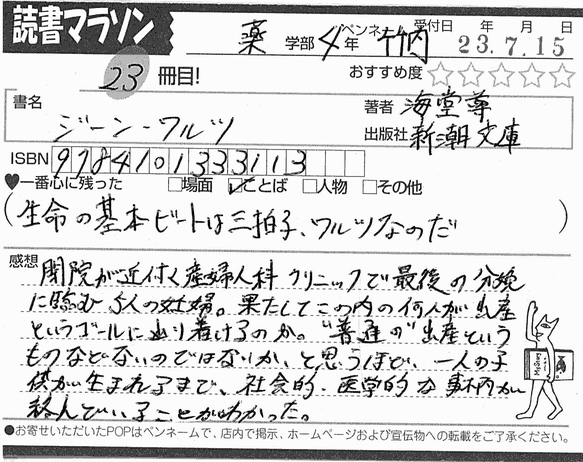 読書マラソン
薬 学部 4 年 ペンネーム 竹内 受付日 年 月 日 23.7.15
23 冊目! おすすめ度 ☆☆☆☆☆
書名 ジーン・ワルツ 著者 海堂尊
出版社 新潮文庫
ISBN 9784101333113
♥一番心に残った □場面 ☑ことば □人物 □その他
(生命の基本ビートは三拍子、ワルツなのだ)
感想 閉院が近付く産婦人科クリニックで最後の分娩
に臨む5人の妊婦。果たしてこの内の何人が出産
というゴールに辿り着けるのか。"普通の"出産という
ものなどないのではないか、と思うほど、一人の子
供が生まれるまで、社会的・医学的な事柄が
絡んでいることがわかった。
●お寄せいただいたPOPはペンネームで、店内で掲示、ホームページおよび宣伝物への転載をご了承ください。